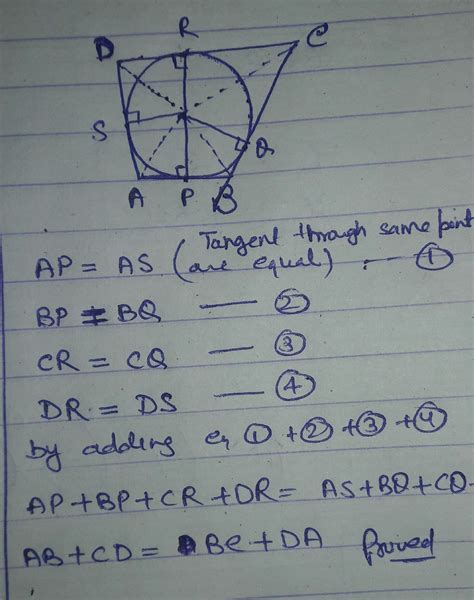 R
C
D
S
Q
A P B
AP = AS (Tangent through same point are equal) . — ①
BP = BQ — ②
CR = CQ — ③
DR = DS — ④
by adding eq ① + ② + ③ + ④
AP + BP + CR + DR = AS + BQ + CQ
AB + CD = BC + DA Proved